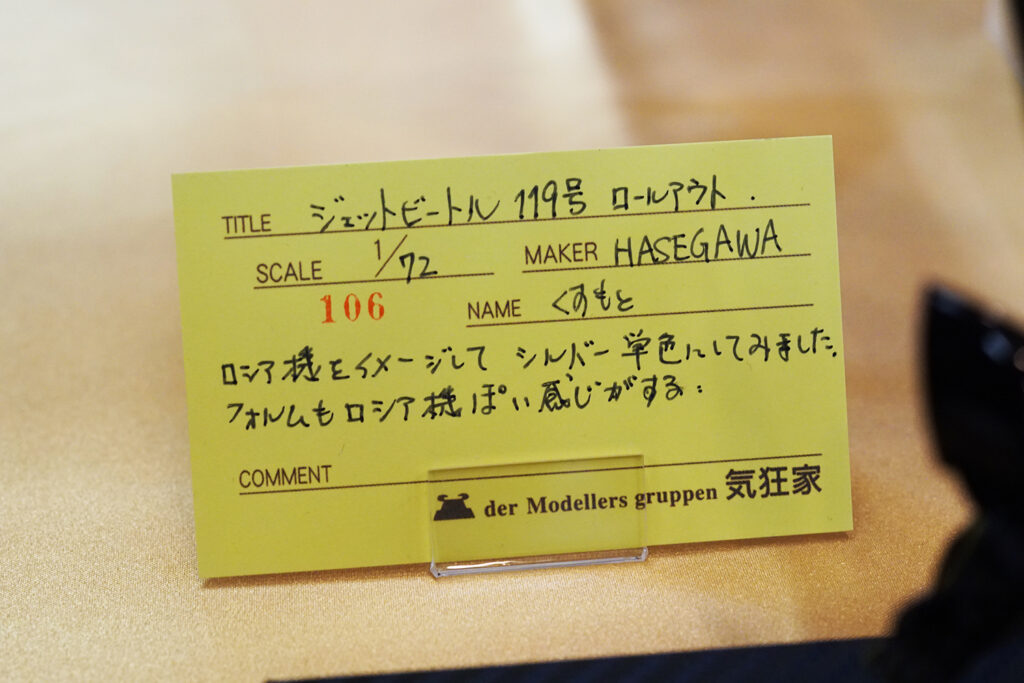 TITLE ジェットビートル 119号 ロールアウト.
SCALE 1/72 MAKER HASEGAWA
106 NAME くすもと
ロシア機をイメージして シルバー単色にしてみました。
フォルムもロシア機ぽい感じがする:
COMMENT
der Modellers gruppen 気狂家